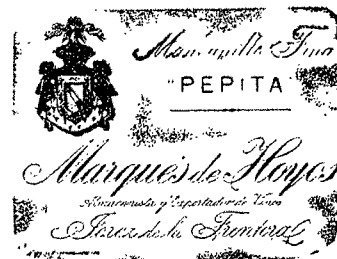 Manzanilla Fina
"PEPITA"
Marqués de Hoyos
Almacenista y Exportador de Vinos
Jerez de la Frontera